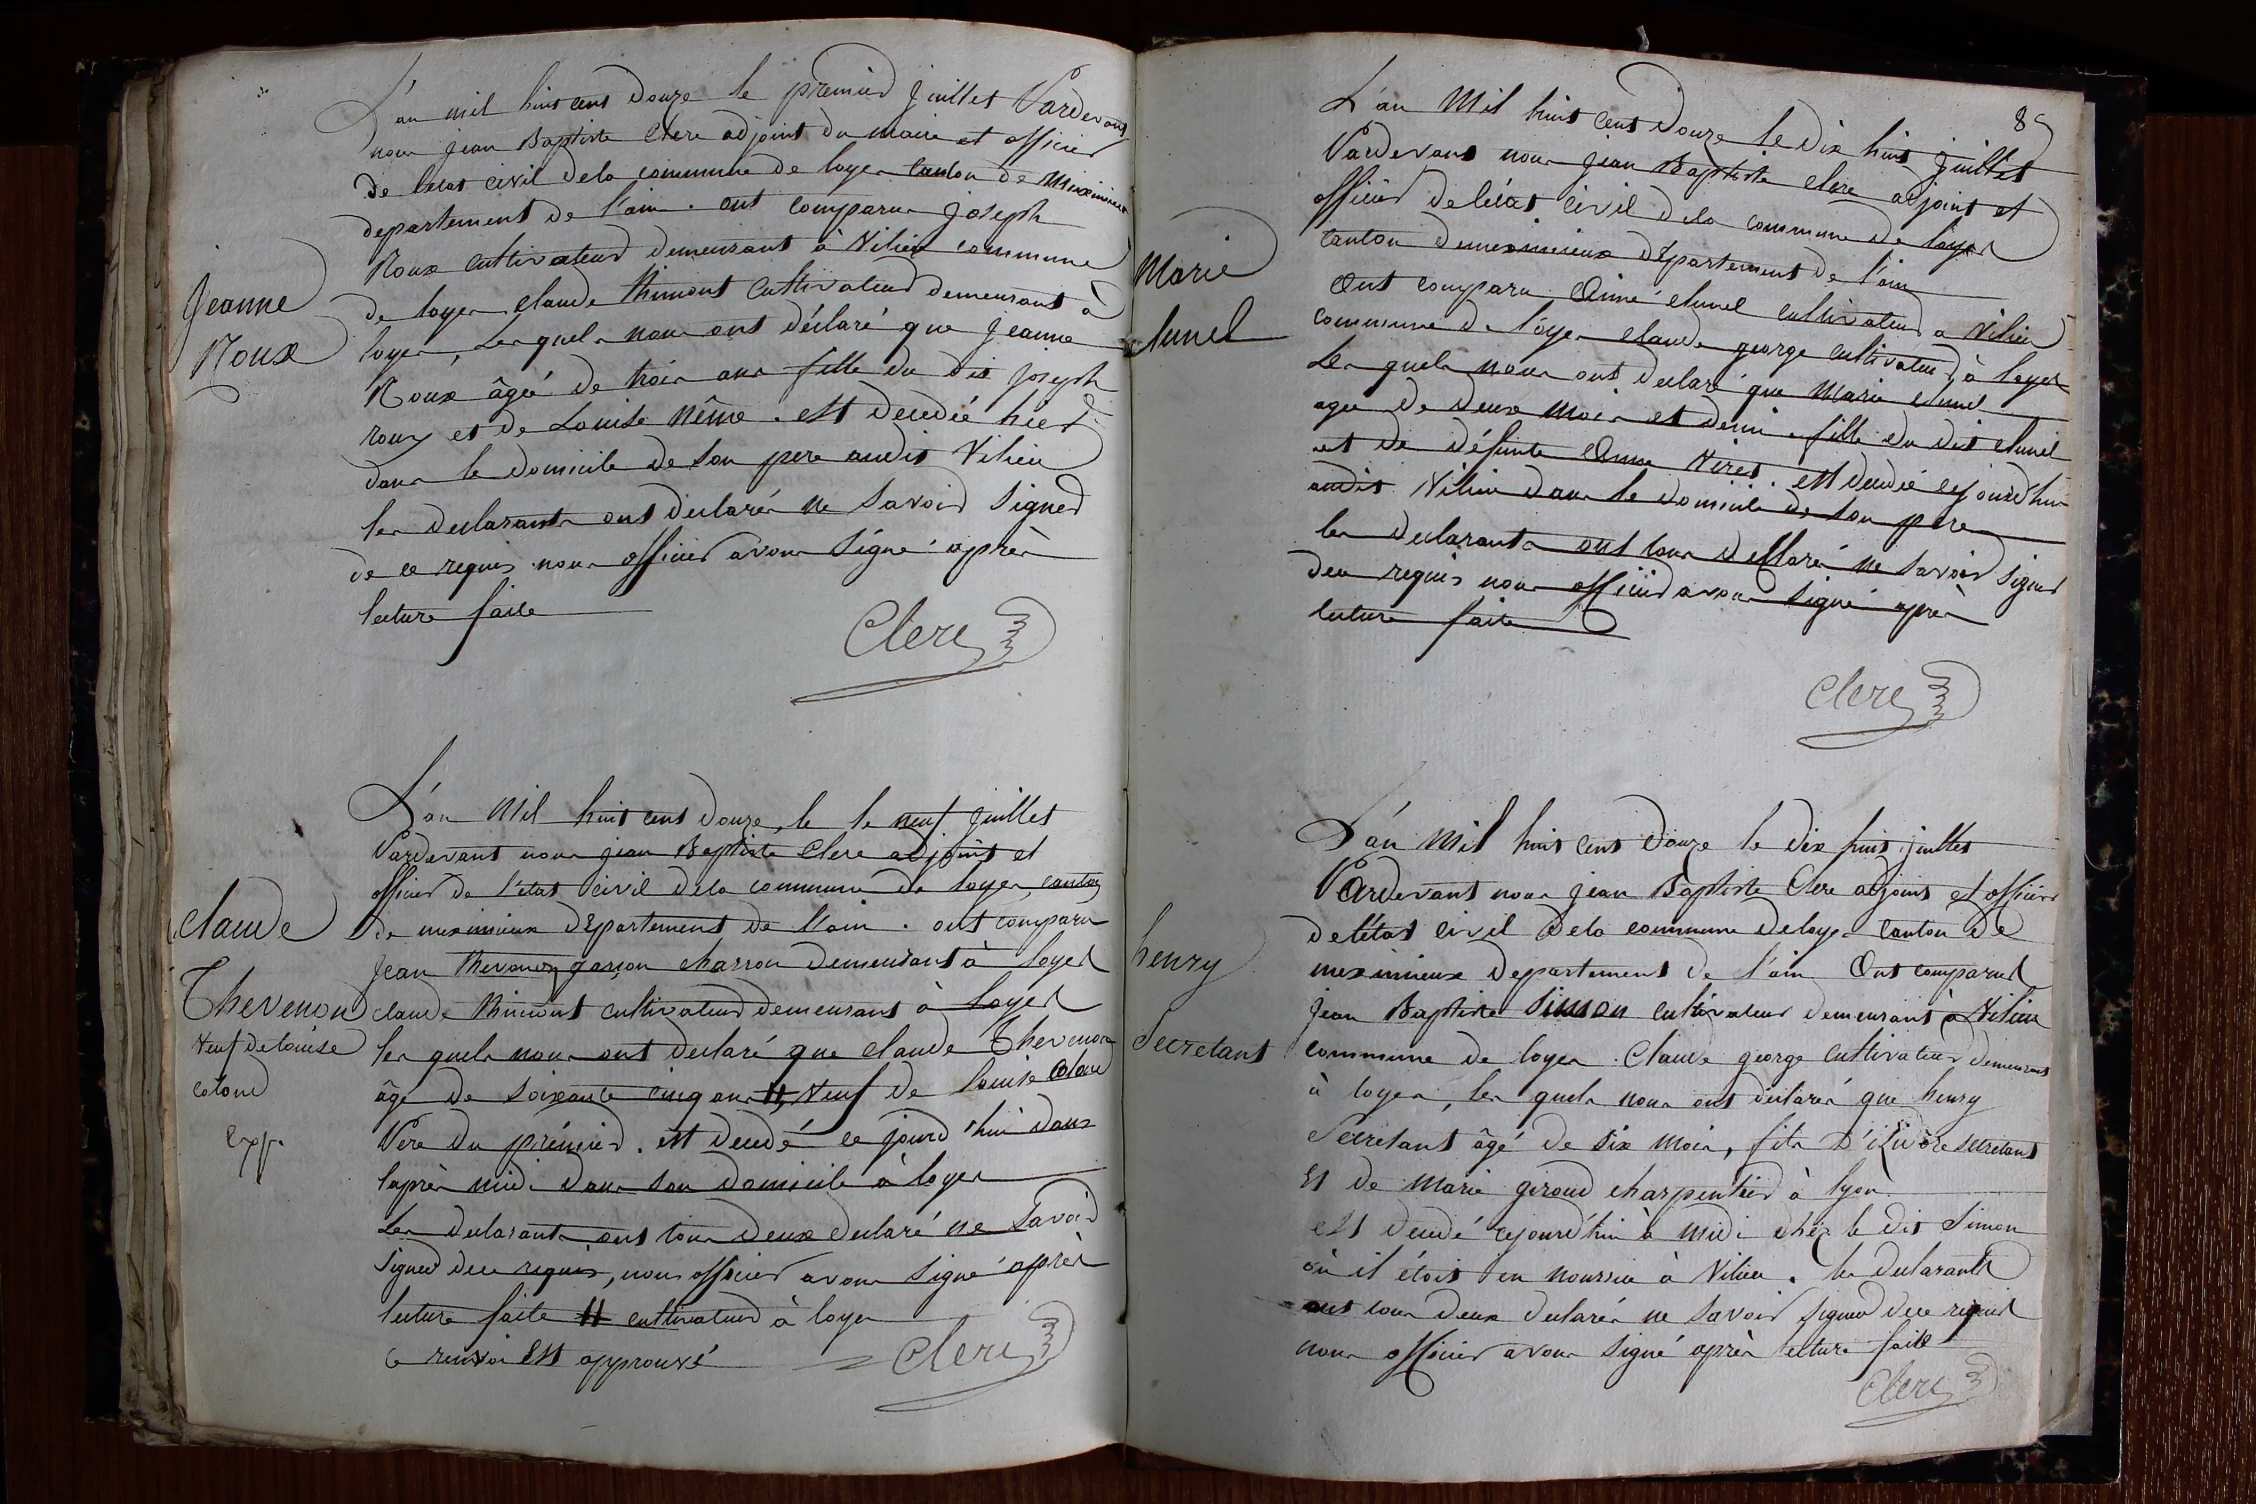 L'an mil huit cent douze le premier juillet Pardevant
nous jean Baptiste Clerc adjoint du maire et officier
de l'etat civil dela commune de loyes canton de Meximieux
departement de l'ain. ont comparus joseph
Jeanne
Roux
Roux cultivateur demeurant à Vilieu commune
de loyes, claude Thimont cultivateur demeurant à
loyes, Les quels nous ont déclaré que jeanne
Roux âgée de trois ans fille du dit joseph
roux et de Louise Nême. est decedée hier
dans le domicile de son pere audit Vilieu
les declarants ont declarés ne savoir signer
de ce requis nous officier avons signé après
lecture faite
Clerc
L'an mil huit cent douze, le le neuf juillet
Pardevant nous jean Baptiste Clerc adjoint et
officier de l'état civil dela commune de loyes, canton
de meximieux département de l'ain. ont comparu
claude
Thevenon
Veuf de louise
cotone
Exp.
jean thevenon garçon charron demeurant à loyes
claude Thimont cultivateur demeurant à loyes
les quels nous ont declaré que claude Thevenon
âgé de soixante cinq ans H, Veuf de Louise
Pere du prémier. est decedé ce jourd'hui dans
laprès midi dans son domicile à loyes
Les declarants ont tous deux declaré ne savoir
signer dece requis, nous officier avons signé après
lecture faite H cultivateur à loyes
ce renvoi est approuvé
Clerc
85
L'an Mil huit cent Douze le dix huit juillet
Pardevant nous jean Baptiste clerc adjoint et
officier de létat civil dela commune de loyes
canton demeximieux département de l'ain
Marie
clunel
Ont comparu Aimé clunel cultivateur a Vilieu
commune de loyes claude george cultivateur, à loyes
Les quels nous ont declaré que Marie clunel
agée de deux mois et demi fille du dit clunel
et de défunte Anne Viret. est decedée cejourd'hui
audit Vilieu dans le domicile de son pere
les declarants ont tous declaré ne savoir signer
dece requis nous officier avons signé après
lecture faite
Clerc
L'an Mil huit cent douze le dix huit juillet
Pardevant nous jean Baptiste Clerc adjoint et officier
de l'état civil dela commune deloyes canton de
meximieux departement de l'ain Ont comparus
henry
Secretant
jean Baptiste Simon cultivateur demeurant à Vilieu
commune de loyes. Claude george cultivateur demeurant
à loyes, les quels nous ont declarés que henry
Secretant âgé de six mois, fils secretant
et de Marie giroud charpentier à lyon
est decedé cejourd'hui à midi chéz le dit Simon
où il étoit en nourrice à Vilieu. les declarants
ont tous deux declarés ne savoir signer dece requis
nous officier avons signé après lecture faite
Clerc